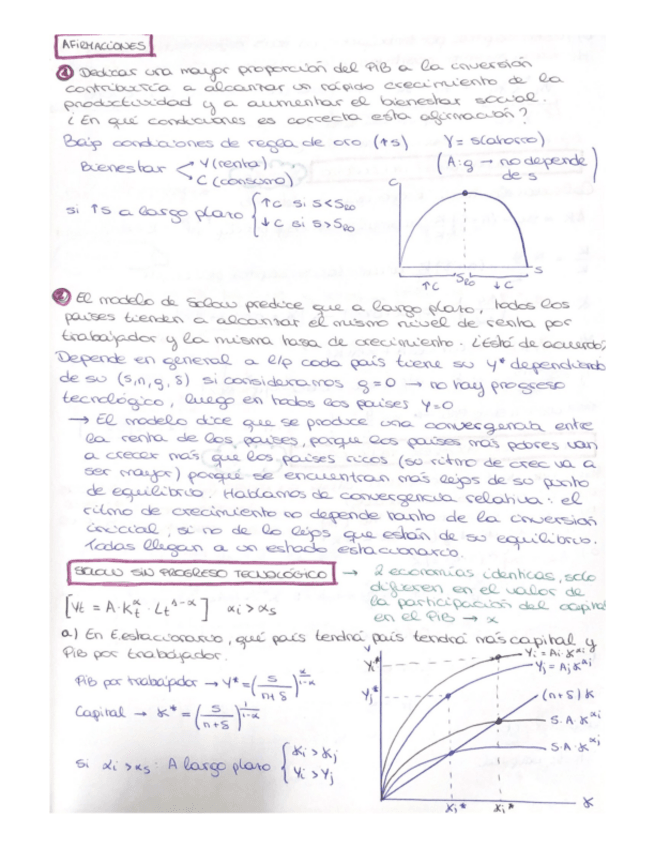 AFIRMACIONES
① Dedicar una mayor proporción del PIB a la inversión
contribuiría a alcanzar un rápido crecimiento de la
productividad y a aumentar el bienestar social.
¿En qué condiciones es correcta esta afirmación?
Bajo condiciones de regla de oro (↑s) Y = s(ahorro)
Bienestar < Y (renta) (A: g → no depende
C (consumo) de s)
si ↑s a largo plazo { ↑C si s < S_RO
↓C si s > S_RO
C
S_RO s
↑C ↓C
② El modelo de Solow predice que a largo plazo, todos los
países tienden a alcanzar el mismo nivel de renta por
trabajador y la misma tasa de crecimiento. ¿Está de acuerdo?
Depende en general a l/p cada país tiene su y* dependiendo
de su (s,n,g,δ) si consideramos g=0 → no hay progreso
tecnológico, luego en todos los países Y=0
→ El modelo dice que se produce una convergencia entre
la renta de los países, porque los países más pobres van
a crecer más que los países ricos (su ritmo de crec va a
ser mayor) porque se encuentran más lejos de su punto
de equilibrio. Hablamos de convergencia relativa: el
ritmo de crecimiento no depende tanto de la inversión
inicial, si no de lo lejos que están de su equilibrio.
Todas llegan a un estado estacionario.
SOLOW SIN PROGRESO TECNOLÓGICO → 2 economías identicas, solo
difieren en el valor de
la participación del capital
en el PIB → α
[Yt = A·K_t^α · L_t^{1-α}] αi > αs
a) En E.estacionario, qué país tendrá país tendrá más capital y
PIB por trabajador.
PIB por trabajador → Y* = (s/(n+δ))^{α/(1-α)}
Capital → K* = (s/(n+δ))^{1/(1-α)}
si αi > αs: A largo plazo { Ki > Kj
Yi > Yj
Y
Yi*
Yj*
Yi = Ai·K^αi
Yj = Aj K^αi
(n+δ) K
S·A·K^αi
S·A·K^αj
Kj* Ki* K